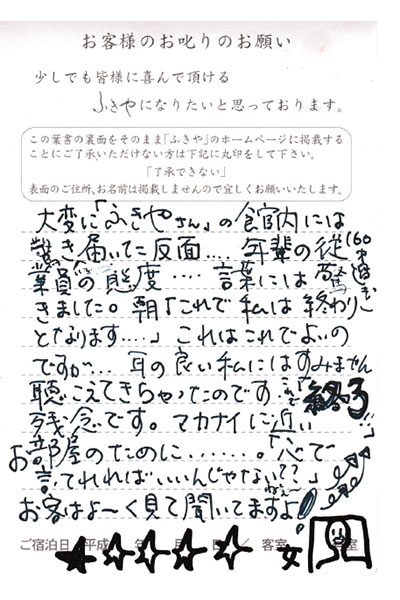 お客様のお叱りのお願い
少しでも皆様に喜んで頂ける
ふきやになりたいと思っております。
この葉書の裏面をそのまま「ふきや」のホームページに掲載する
ことにご了承いただけない方は下記に丸印をして下さい。
「了承できない」
表面のご住所、お名前は掲載しませんので宜しくお願いいたします。
大変に「ふきやさん」の館内には
き届いてた反面‥‥年輩の従
業員の態度‥‥言葉には驚
きました。朝「これで私は終わり
となります‥‥」これはこれでよいの
ですが‥‥耳の良い私にはすみません
聴こえてきちゃったのです
これで終了
残念です。マカナイに近い
お部屋のたのに‥‥‥。「心で
言ってれればいいんじゃない??
ねぇ〜
お客はよ〜く見て聞いてますよ!
ご宿泊日 平成 年 月 日/ 客室 室
★☆☆☆☆ 女